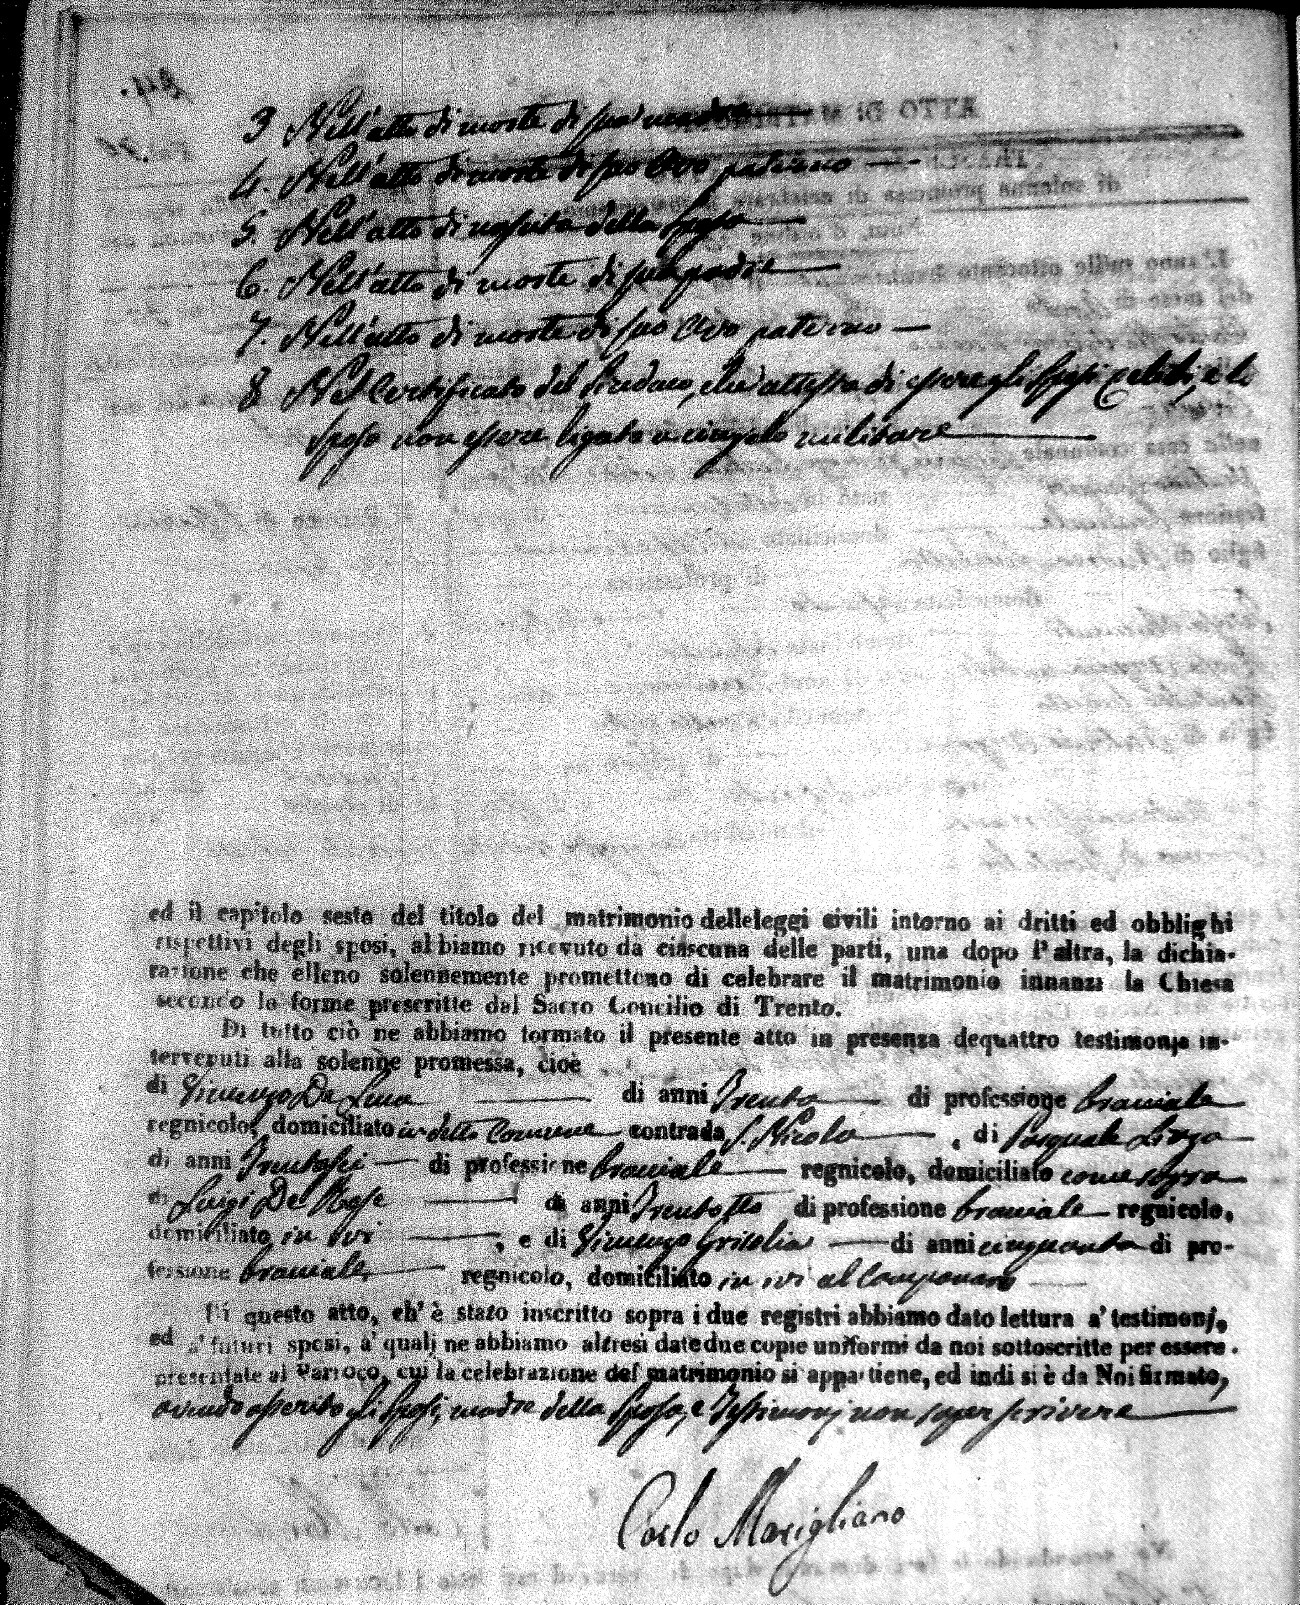 3 Nell'atto di morte di sua madre
4. Nell'atto di morte di suo Avo paterno
5. Nell'atto di nascita della Sposa
6. Nell'atto di morte di suo padre
7. Nell'atto di morte di suo Avo paterno
8 Nel Certificato del Sindaco, che attesta di essere gli Sposi celibi, e lo
sposo non essere ligato a cingolo militare
ed il capitolo sesto del titolo del matrimonio delle leggi civili intorno ai dritti ed obblighi
rispettivi degli sposi, abbiamo ricevuto da ciascuna delle parti, una dopo l'altra, la dichia-
razione che elleno solennemente promettono di celebrare il matrimonio innanzi la Chiesa
secondo le forme prescritte dal Sacro Concilio di Trento.
Di tutto ciò ne abbiamo formato il presente atto in presenza de quattro testimonj in-
tervenuti alla solenne promessa, cioè
di Vincenzo De Luca di anni Trenta di professione bracciale
regnicolo, domiciliato in detto Comune contrada S. Nicola , di Pasquale Lizza
di anni Trentasei di professione bracciale regnicolo, domiciliato come sopra
di Luigi De Rose di anni Trentotto di professione bracciale regnicolo,
domiciliato in ivi , e di Vincenzo Grisolia di anni cinquanta di pro-
fessione bracciale regnicolo, domiciliato in ivi al Campanaro
Di questo atto, ch' è stato inscritto sopra i due registri abbiamo dato lettura a' testimonj,
ed a' futuri sposi, a' quali ne abbiamo altresì date due copie uniformi da noi sottoscritte per essere
presentate al Parroco, cui la celebrazione del matrimonio si appartiene, ed indi si è da Noi firmato,
avendo asserito gli Sposi, madre della Sposa, e Testimonj non saper scrivere
Carlo Marigliano